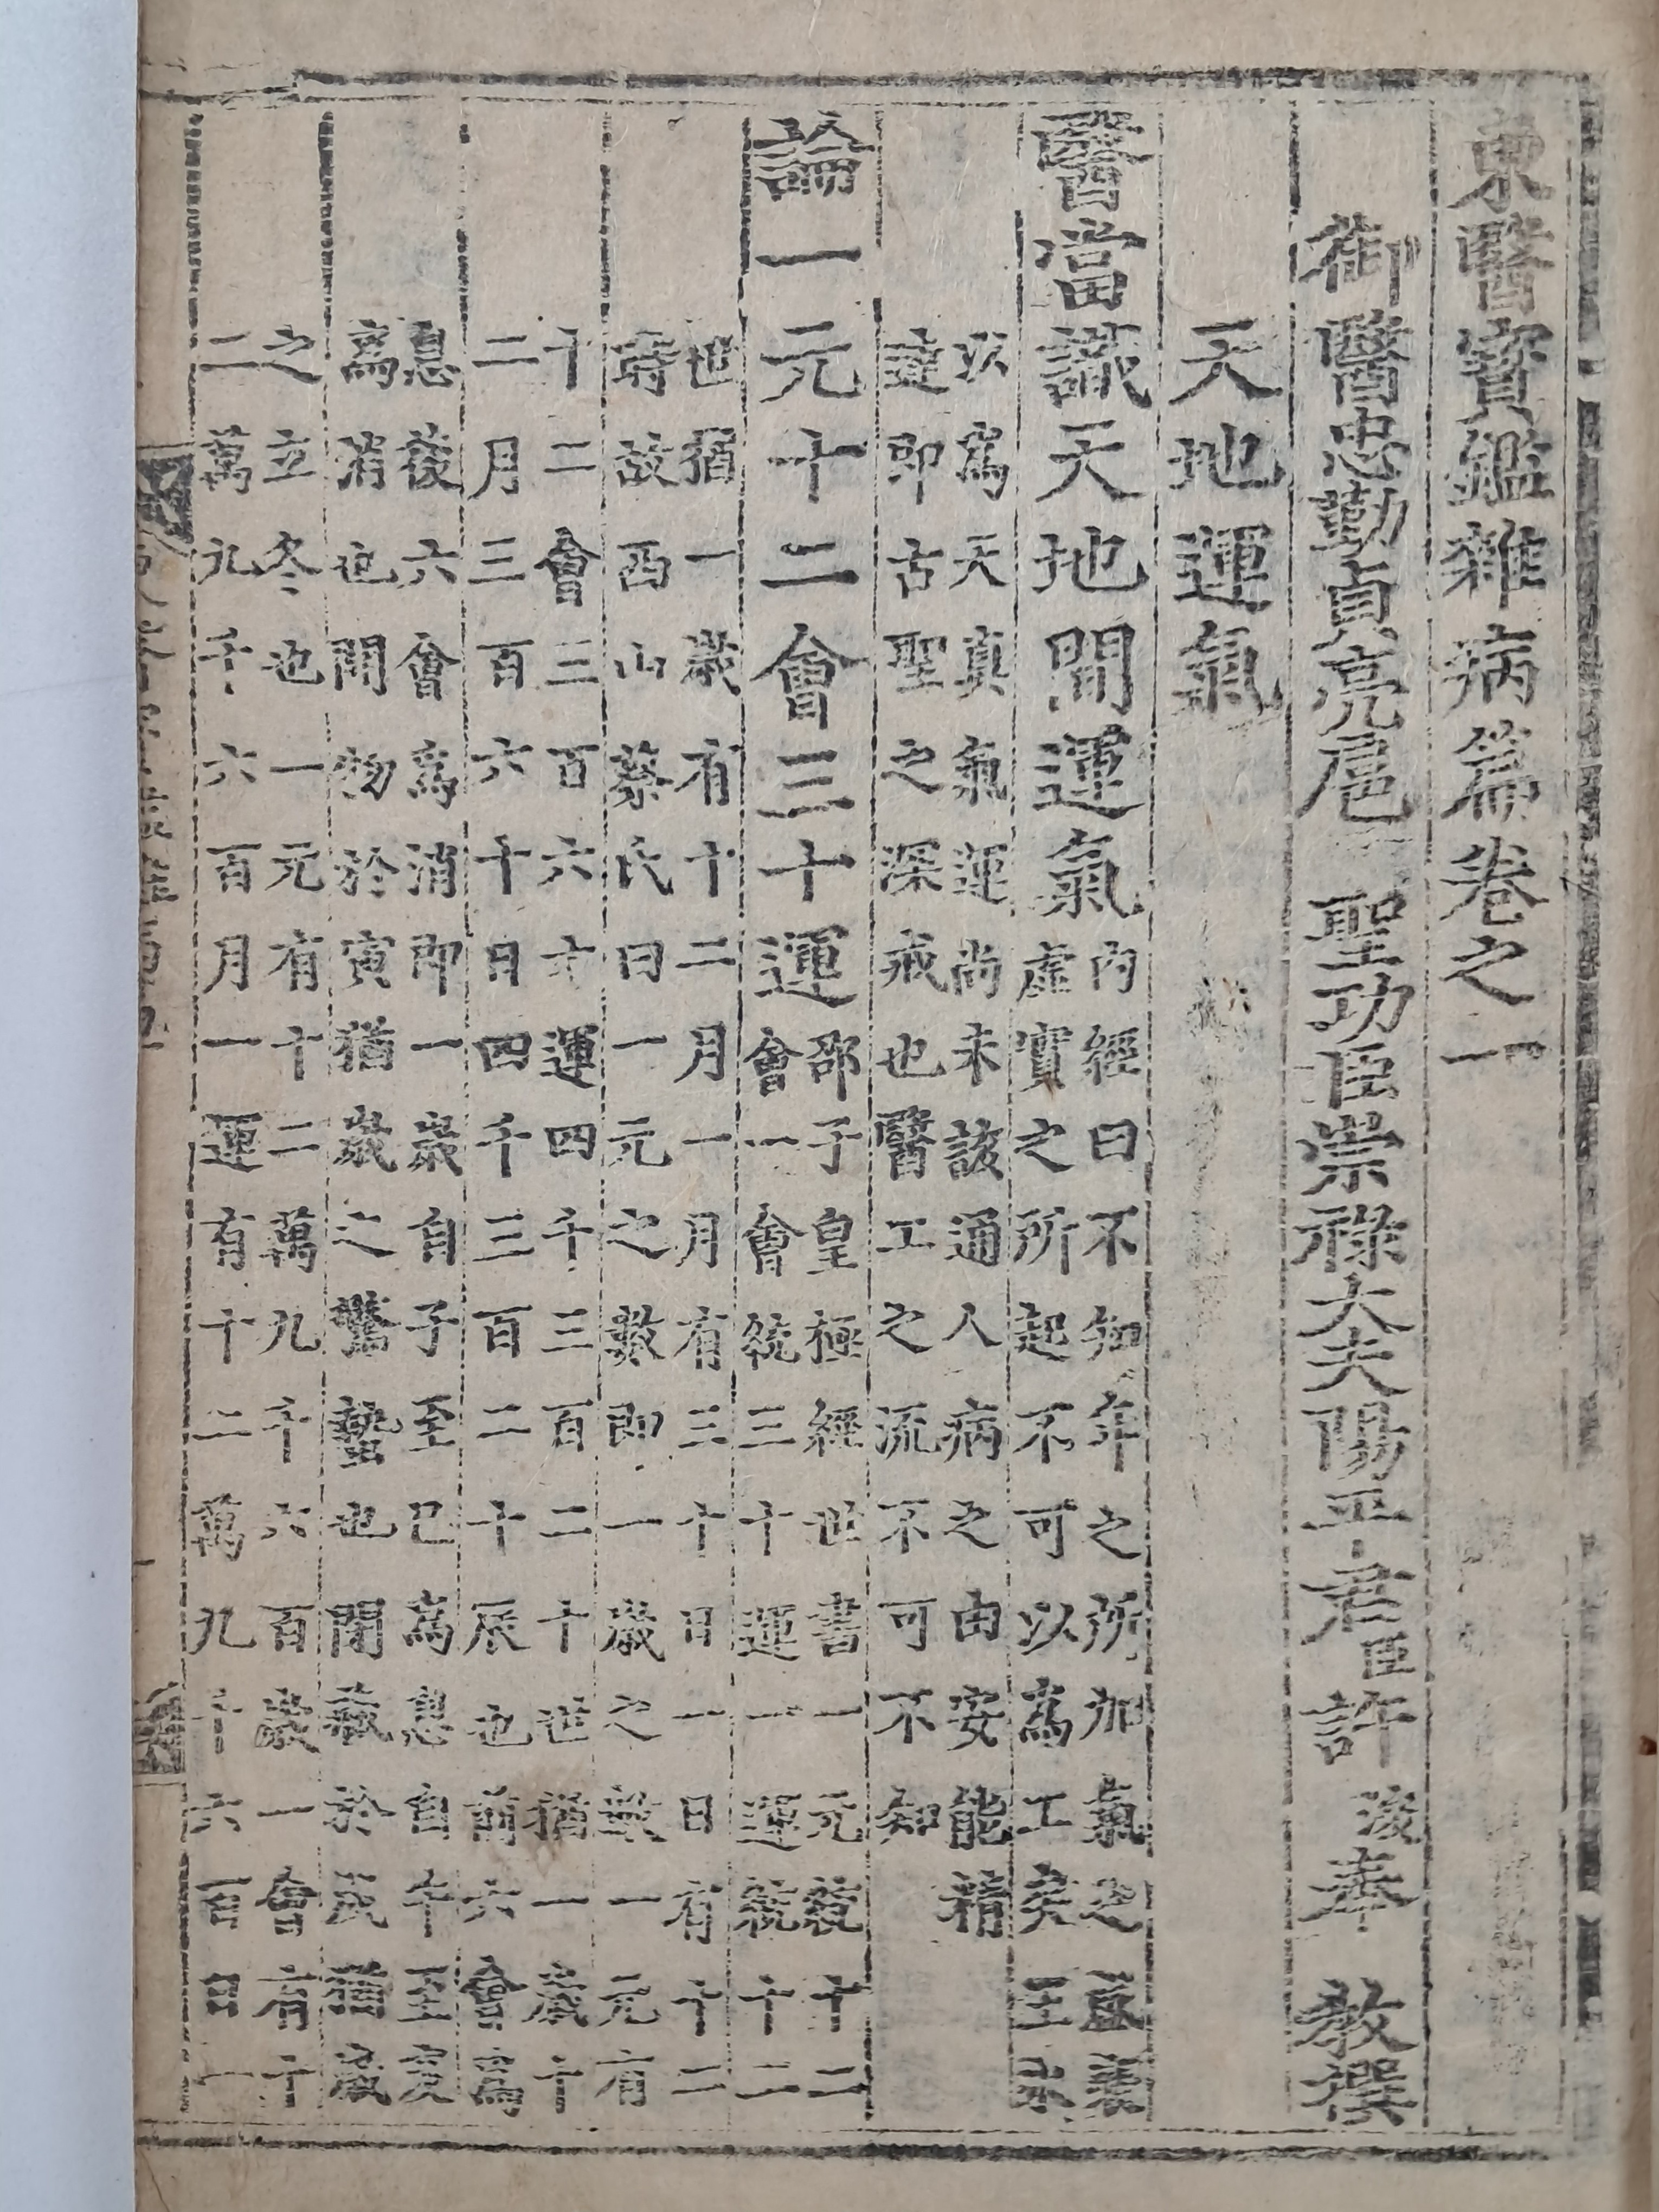 東醫寶鑑雜病篇卷之一
御醫忠勤貞亮扈 聖功臣崇祿大夫陽平君臣許 浚奉 教撰
天地運氣
醫當識天地間運氣
內經曰不知年之所加氣之盛衰
虛實之所起不可以爲工矣王氷
以爲天真氣運尚未該通人病之由安能精
達即古聖之深戒也醫工之流不可不知
論一元十二會三十運
邵子皇極經世書一元統十二
會一會統三十運一運統十二
世猶一歲有十二月一月有三十日一日有十二
時故西山蔡氏曰一元之數即一歲之數一元有
十二會三百六十運四千三百二十世猶一歲十
二月三百六十日四千三百二十辰也前六會爲
息後六會爲消即一歲自子至巳爲息自午至亥
爲消也開物於寅猶歲之驚蟄也閉於戌猶歲
之立冬也一元有十二萬九千六百歲一會有十
二萬九千六百月一運有十二萬九千六百日一